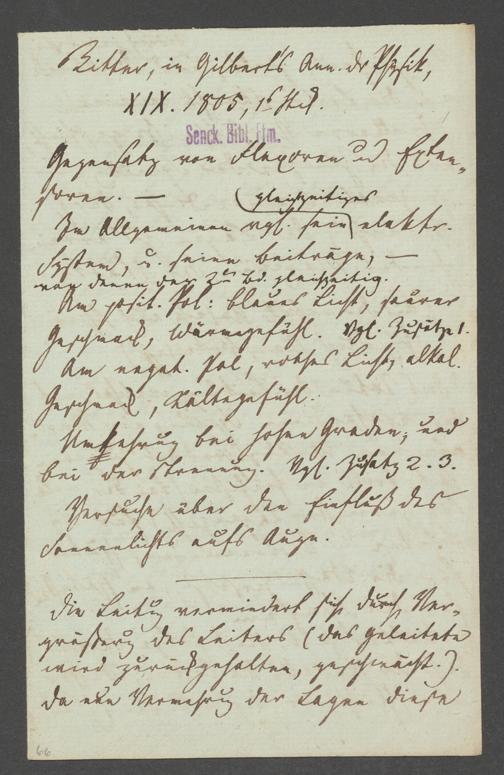 Ritter, in Gilbert's Ann. dr Physik,
XIX. 1805, 1s Stck.
Senck. Bibl. Ffm.
Gegensatz von Flexoren und Exten-
soren. —
(gleichzeitiges
Im Allgemeinen vgl. sein elektr.
System, u. seine Beiträge, —
von denen der 2te Bd. gleichzeitig.
Am posit. Pol: blaues Licht, saurer
Geschmack, Wärmegefühl. Vgl. Zusätze 1.
Am negat. Pol, rothes Licht, alkal.
Geschmack, Kältegefühl.
Umkehrung bei hohen Graden, und
bei der Trennung. Vgl. Zusatz 2. 3.
Versuche über den Einfluß des
Sonnenlichts aufs Auge.
Die Leitung vermindert sich durch Ver-
größerung des Leiters (das Geleitete
wird zurückgehalten, geschwächt.).
Da nun Vermehrung der Lagen diese
66